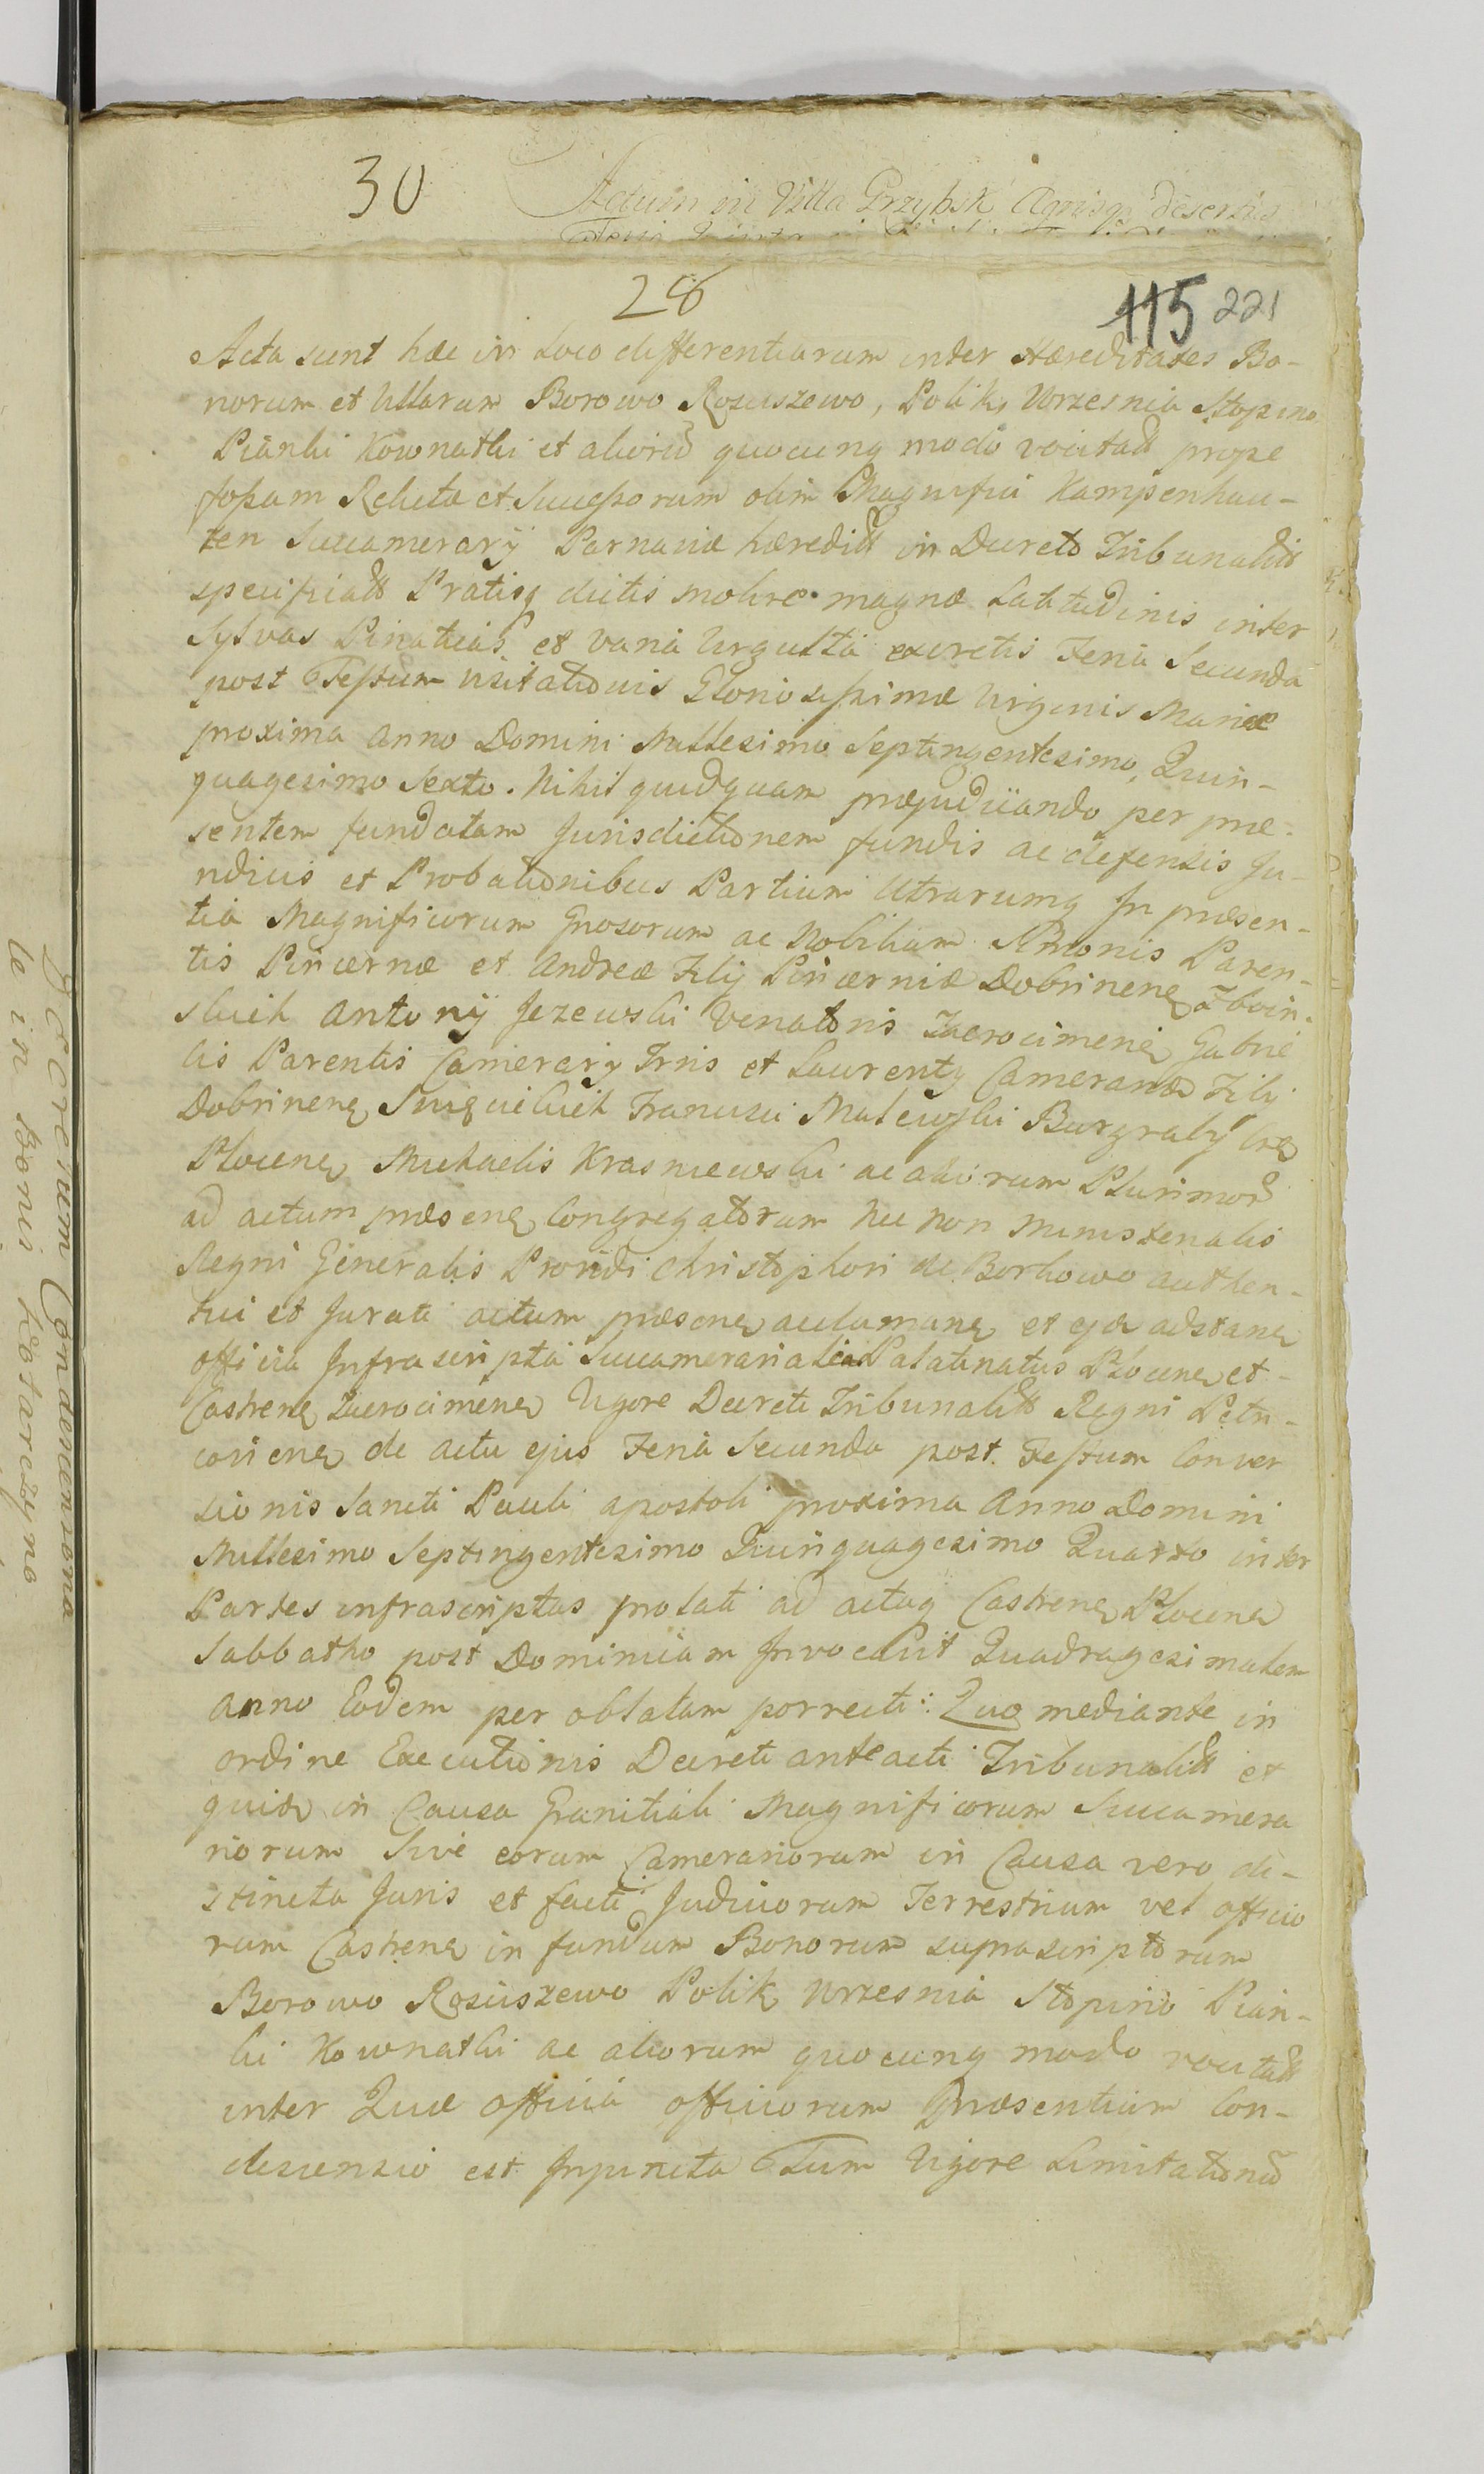 30 Actum in Villa Grzybsk
28
115 221
Acta sunt hæc in Loco differentiarum inter Hæreditates Bo-
norum et Villarum Borowo Rosciszewo, Polik, Wrzesnia Stopino
Pianki Kownatki et aliorũ quocunq modo vocitatt prope
fossam Relicta et Successorum olim Magnifici Kampenhau-
zen Succamerarÿ Parnaviæ hæreditt in Decreto Tribunalitt
specificatt Pratisq dictis mokre magnæ Latitudinis inter
Sylvas Pinaticas et varia Virgulta excretis Feria Secunda
post Festum Visitationis Gloriosissimæ Virginis Mariæ
proxima Anno Domini Millesimo Septingentesimo, Quin-
quagesimo Sexto. Nihil quidquam præjudiciando per præ-
sentem fundatam Jurisdictionem fundis ac defensis Ju-
ridicis et Probationibus Partium Utrarumq In præsen-
tia Magnificorum Gnosorum ac Nobilium Paren-
tis Pincernæ et Andreæ Filij Pincerniæ Dobrinenq
Antonÿ Jezewski Venatoris Zacrocimenq Gabrie
lis Parentis Camerarÿ Trris et Laurentÿ Camerariæ Filij
Dobrinenq Francisci Malewski Burgrabÿ
Plocenq Michaelis Krasniewski ac aliorum Plurimorũ
ad actum præsenq Congregatorum Nec Non Ministerialis
Regni Generalis Providi Christophori de Borkowo authen-
tici et Jurati actum præsenq acclamanq et ejdẽ adstanq
officia Infrascripta Succamerarialia Palatinatus Plocenq et
Castrenq Zacrocimenq Vigore Decreti Tribunalitt Regni Petri-
coviensq de actu ejus Feria Secunda post Festum Conver
sionis Sancti Pauli apostoli proxima Anno Domini
Millesimo Septingentesimo Quinquagesimo Quarto inter
Partes infrascriptas prolati ad actaq Castrenq Plocenq
Sabbatho post Dominicam Invocavit Quadragesimalem
anno Eodem per oblatam porrecti: Quo mediante in
ordine Executionis Decreti anteacti Tribunalitt et
quidẽ in Causa Granitiali Magnificorum Succamera
riorum Sive eorum Camerariorum in Causa vero di-
stincta Juris et facti Judiciorum Terrestrium vel officio
rum Castrenq in fundum Bonorum suprascriptorum
Borowo Rosciszewo Polik Wrzesnia Stopino Pian-
ki Kownatki ac aliorum quocunq modo vocitatt
inter Quæ officia officiorum Præsentium Con-
descensio est Injuncta Tum Vigore Limitationũ
Decretum Condescensiona
le in Bonis Kotarczyno